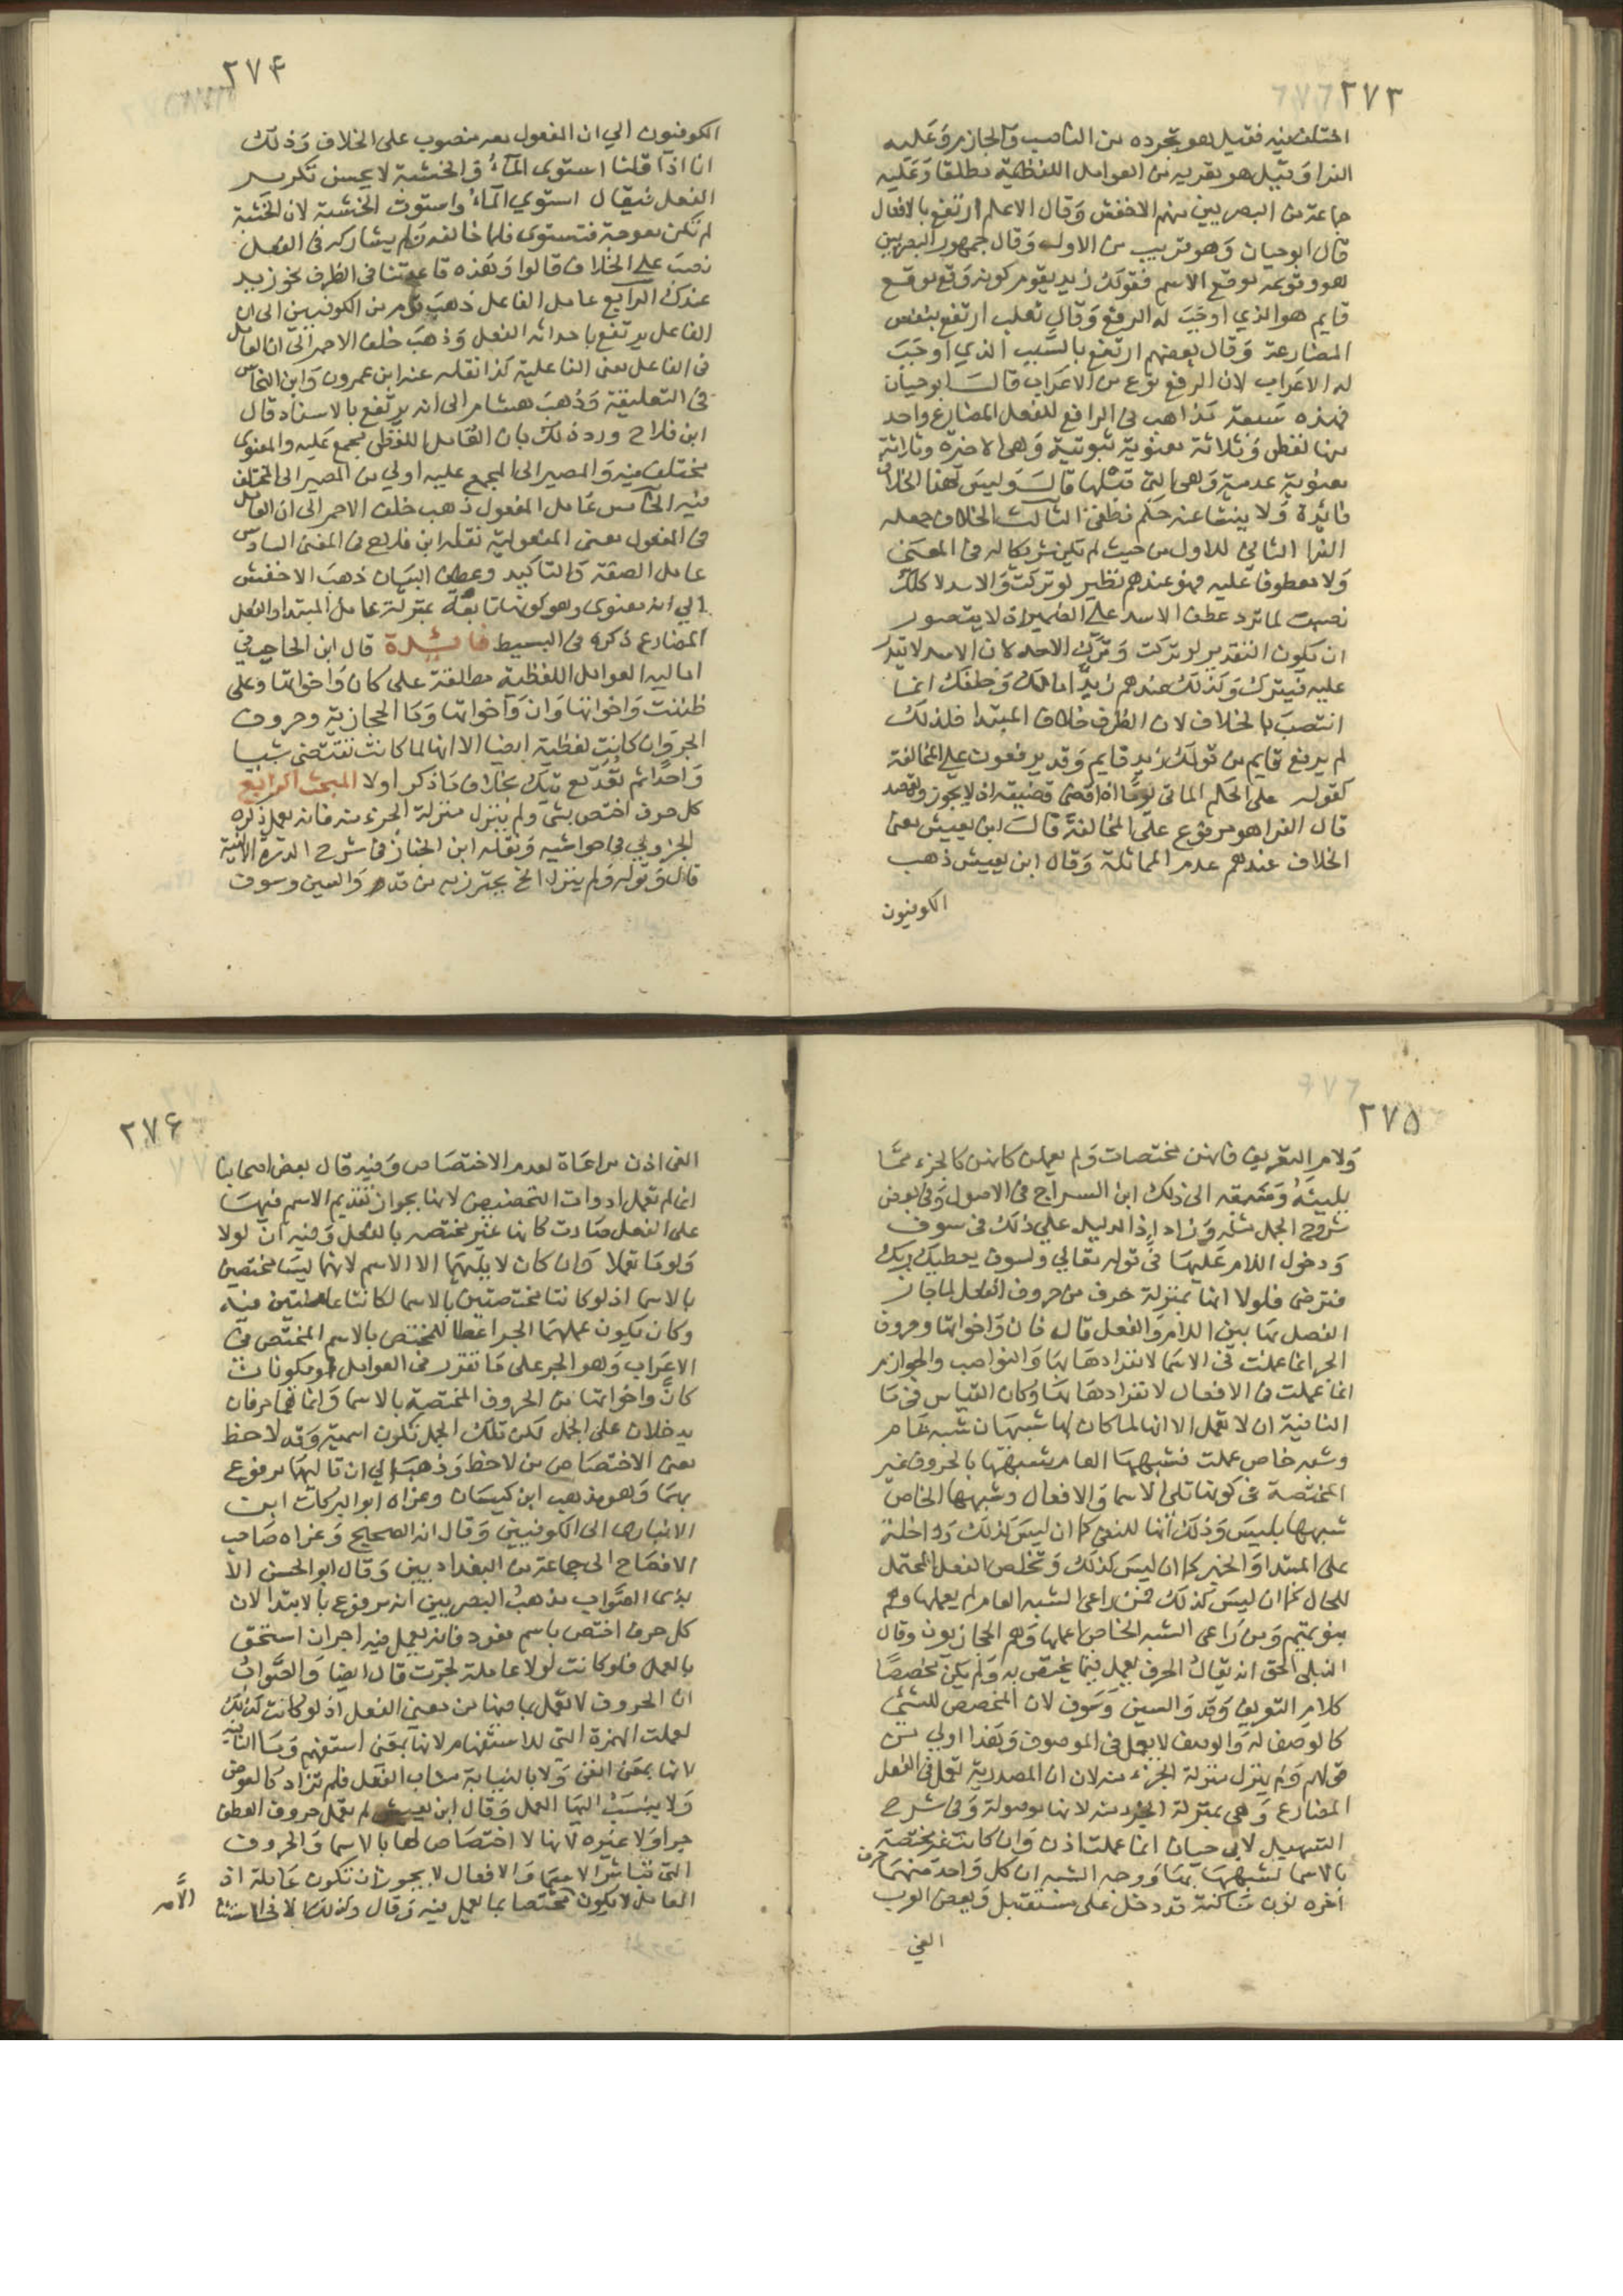 ٢٧٣
اختلف فيه فقيل هو تجرده من الناصب والجازم وعليه
الفرا وقيل هو تعريه من العوامل اللفظية مطلقا وعليه
جماعة من البصريين منهم الاخفش وقال الاعلم ارتفع بالاهمال
قال ابو حيان وهو قريب من الاول وقال جمهور البصريين
هو وقوعه موقع الاسم فقولك زيد يقوم كونه وقع موقع
قايم هو الذي اوجب له الرفع وقال ثعلب ارتفع بنفس
المضارعة وقال بعضهم ارتفع بالسبب الذي اوجب
له الاعراب لان الرفع نوع من الاعراب قال ابو حيان
فهذه سبعة مذاهب في الرافع للفعل المضارع واحد
منها لفظي وثلاثة معنوية ثبوتية وهي الاخيرة وثلاثة
معنوية عدمية وهي التي قبلها قال وليس لهذا الخلاف
فائدة ولا ينشا عنه حكم نطقي الثالث الخلاف جعله
الفرا الثاني للاول من حيث لم يكن شريكا له في المعنى
ولا معطوفا عليه فهو عندهم نظير لو تركت والاسد لاكلك
نصبت لما ترد عطف الاسد على الضمير اذ لا يتصور
ان يكون التقدير لو تركت وترك الاسد لان الاسد لا يقدر
عليه فيترك وكذلك عندهم زيد امامك وخلفك انما
انتصب بالخلاف لان الظرف خلاف المبتدا فلذلك
لم يرفع قايم من قولك زيد قايم وقد يرفعون على المخالفة
كقوله على الحكم الماتي يوما اذا قضى قضيته ان لا يجوز ويقصد
قال الفرا هو مرفوع على المخالفة قال ابن يعيش معنى
الخلاف عندهم عدم المماثلة وقال ابن يعيش ذهب
الكوفيون
٢٧۴
الكوفيون الي ان المفعول معه منصوب على الخلاف وذلك
انا اذا قلنا استوى الماء والخشبة لا يحسن تكرير
الفعل فيقال استوي الماء واستوت الخشبة لان الخشبة
لم تكن معوجة فتستوى فلما خالفه ولم يشاركه في الفعل
نصب على الخلاف قالوا وهذه قاعدتنا في الظرف نحو زيد
عندك الرابع عامل الفاعل ذهب قوم من الكوفيين الى ان
الفاعل يرتفع باحداثه الفعل وذهب خلف الاحمر الى ان العامل
في الفاعل معنى الفاعلية كذا نقله عنه ابن عمرون وابن النحاس
في التعليقة وذهب هشام الى انه يرتفع بالاسناد قال
ابن فلاح ورد ذلك بان العامل اللفظي مجمع عليه والمعنوى
مختلف فيه والمصير الى المجمع عليه اولي من المصير الى المختلف
فيه الخامس عامل المفعول ذهب خلف الاحمر الى ان العامل
في المفعول معنى المفعولية نقله ابن فلاح في المغنى السادس
عامل الصفة والتاكيد وعطف البيان ذهب الاخفش
الي انه معنوى وهو كونها تابعة بمنزلة عامل المبتدا والفعل
المضارع ذكره في البسيط فائدة قال ابن الحاجب في
اماليه العوامل اللفظية مطلقة على كان واخواتها وعلى
ظننت واخواتها وان واخواتها وما الحجازية وحروف
الجر وان كانت لفظية ايضا الا انها لما كانت تقتضي شيا
واحدا لم تعد مع تيك بخلاف ما ذكر اولا المبحث الرابع
كل حرف اختص بشي ولم ينزل منزلة الجزء منه فانه يعمل ذكره
الجزولي في حواشيه ونقله ابن الخباز في شرح الدرة الالفية
قال وقوله ولم ينزل الخ يحترز به من قد والسين وسوف
٢٧٥
ولام التعريف فانهن مختصات ولم يعملن كانهن كالجزء مما
يليه وسبقه الى ذلك ابن السراج في الاصول وفي بعض
شروح الجمل مثله وزاد اذ الدليل علي ذلك في سوف
ودخول اللام عليها في قوله تعالي ولسوف يعطيك ربك
فترضى فلولا انها بمنزلة حرف من حروف الفعل لما جاز
الفصل بها بين اللام والفعل قال فان واخواتها وحروف
الجر انما عملت في الاسما لانفرادها بها والنواصب والجوازم
انما عملت في الافعال لانفرادها بها وكان القياس في ما
النافية ان لا تعمل الا انها لما كان لها شبهان شبه عام
وشبه خاص عملت فشبهها العام شبهها بالحروف غير
المختصة في كونها تلي الاسما والافعال وشبهها الخاص
شبهها بليس وذلك انها للنفي كما ان ليس كذلك وداخلة
على المبتدا والخبر كما ان ليس كذلك وتخلص الفعل المحتمل
للحال كما ان ليس كذلك فمن راعى الشبه العام لم يعملها وهم
بنو تميم ومن راعى الشبه الخاص اعملها وهم الحجازيون وقال
النيلي الحق انه يقال الحرف يعمل فيما يختص به ولم يكن مخصصا
كلام التعريف وقد والسين وسوف لان المخصص للشي
كالوصف له والوصف لا يعمل في الموصوف وهذا اولي من
قولهم ولم ينزل منزلة الجزء منه لان ان المصدرية تعمل في الفعل
المضارع وهي بمنزلة الجزء منه لانها موصولة وفي شرح
التسهيل لابي حيان انما عملت اذن وان كانت غير مختصة
بالاسما لشبهها بما ووجه الشبه ان كل واحد منهما حرف
اخره نون ساكنة قد دخل على مستقبل وبعض العرب
الغي
٢٧۶
الغى اذن مراعاة لعدم الاختصاص وفيه قال بعض اصحابنا
انما لم تعمل ادوات التحضيض لانها بجواز تقديم الاسم فيها
على الفعل صارت كانها غير مختصه بالفعل وفيه ان لولا
ولوما تعملا وان كان لا يليهما الا الاسم لانهما ليسا مختصين
بالاسما اذ لو كانتا مختصتين بالاسما لكانتا عاملتين فيه
وكان يكون عملهما الجر اعطا للمختص بالاسم المختص في
الاعراب وهو الجر على ما تقرر في العوامل او يكونا من
كان واخواتها من الحروف المختصة بالاسما وانما هما حرفان
يدخلان على الجمل لكن تلك الجمل تكون اسمية وقد لاحظ
معنى الاختصاص من لاحظ وذهب الي ان تاليهما مرفوع
بهما وهو مذهب ابن كيسان وعزاه ابو البركات ابن
الانبارى الى الكوفيين وقال انه الصحيح وعزاه صاحب
الافصاح الى جماعة من البغداديين وقال ابو الحسن الا
بذى الصواب مذهب البصريين انه مرفوع بالابتدا لان
كل حرف اختص باسم مفرد فانه يعمل فيه الجر ان استحق
بالعمل فلو كانت لولا عاملة لجرت قال ايضا والصواب
ان الحروف لا تعمل بما فيها من معنى الفعل اذ لو كانت كذلك
لعملت الهمزة التي للاستفهام لانها بمعنى استفهم وما النافية
لانها بمعنى انفي ولا بالنيابة مناب الفعل فلم تزاد كالعوض
ولا ينسب اليها العمل وقال ابن يعيش لم تعمل حروف العطف
جرا ولا غيره لانها لا اختصاص لها بالاسما والحروف
التي تباشر الاسما والافعال لا يجوز ان تكون عاملة اذ
العامل لا يكون مختصا بما يعمل فيه وقال وكذلك الا في الاستثنا
الا